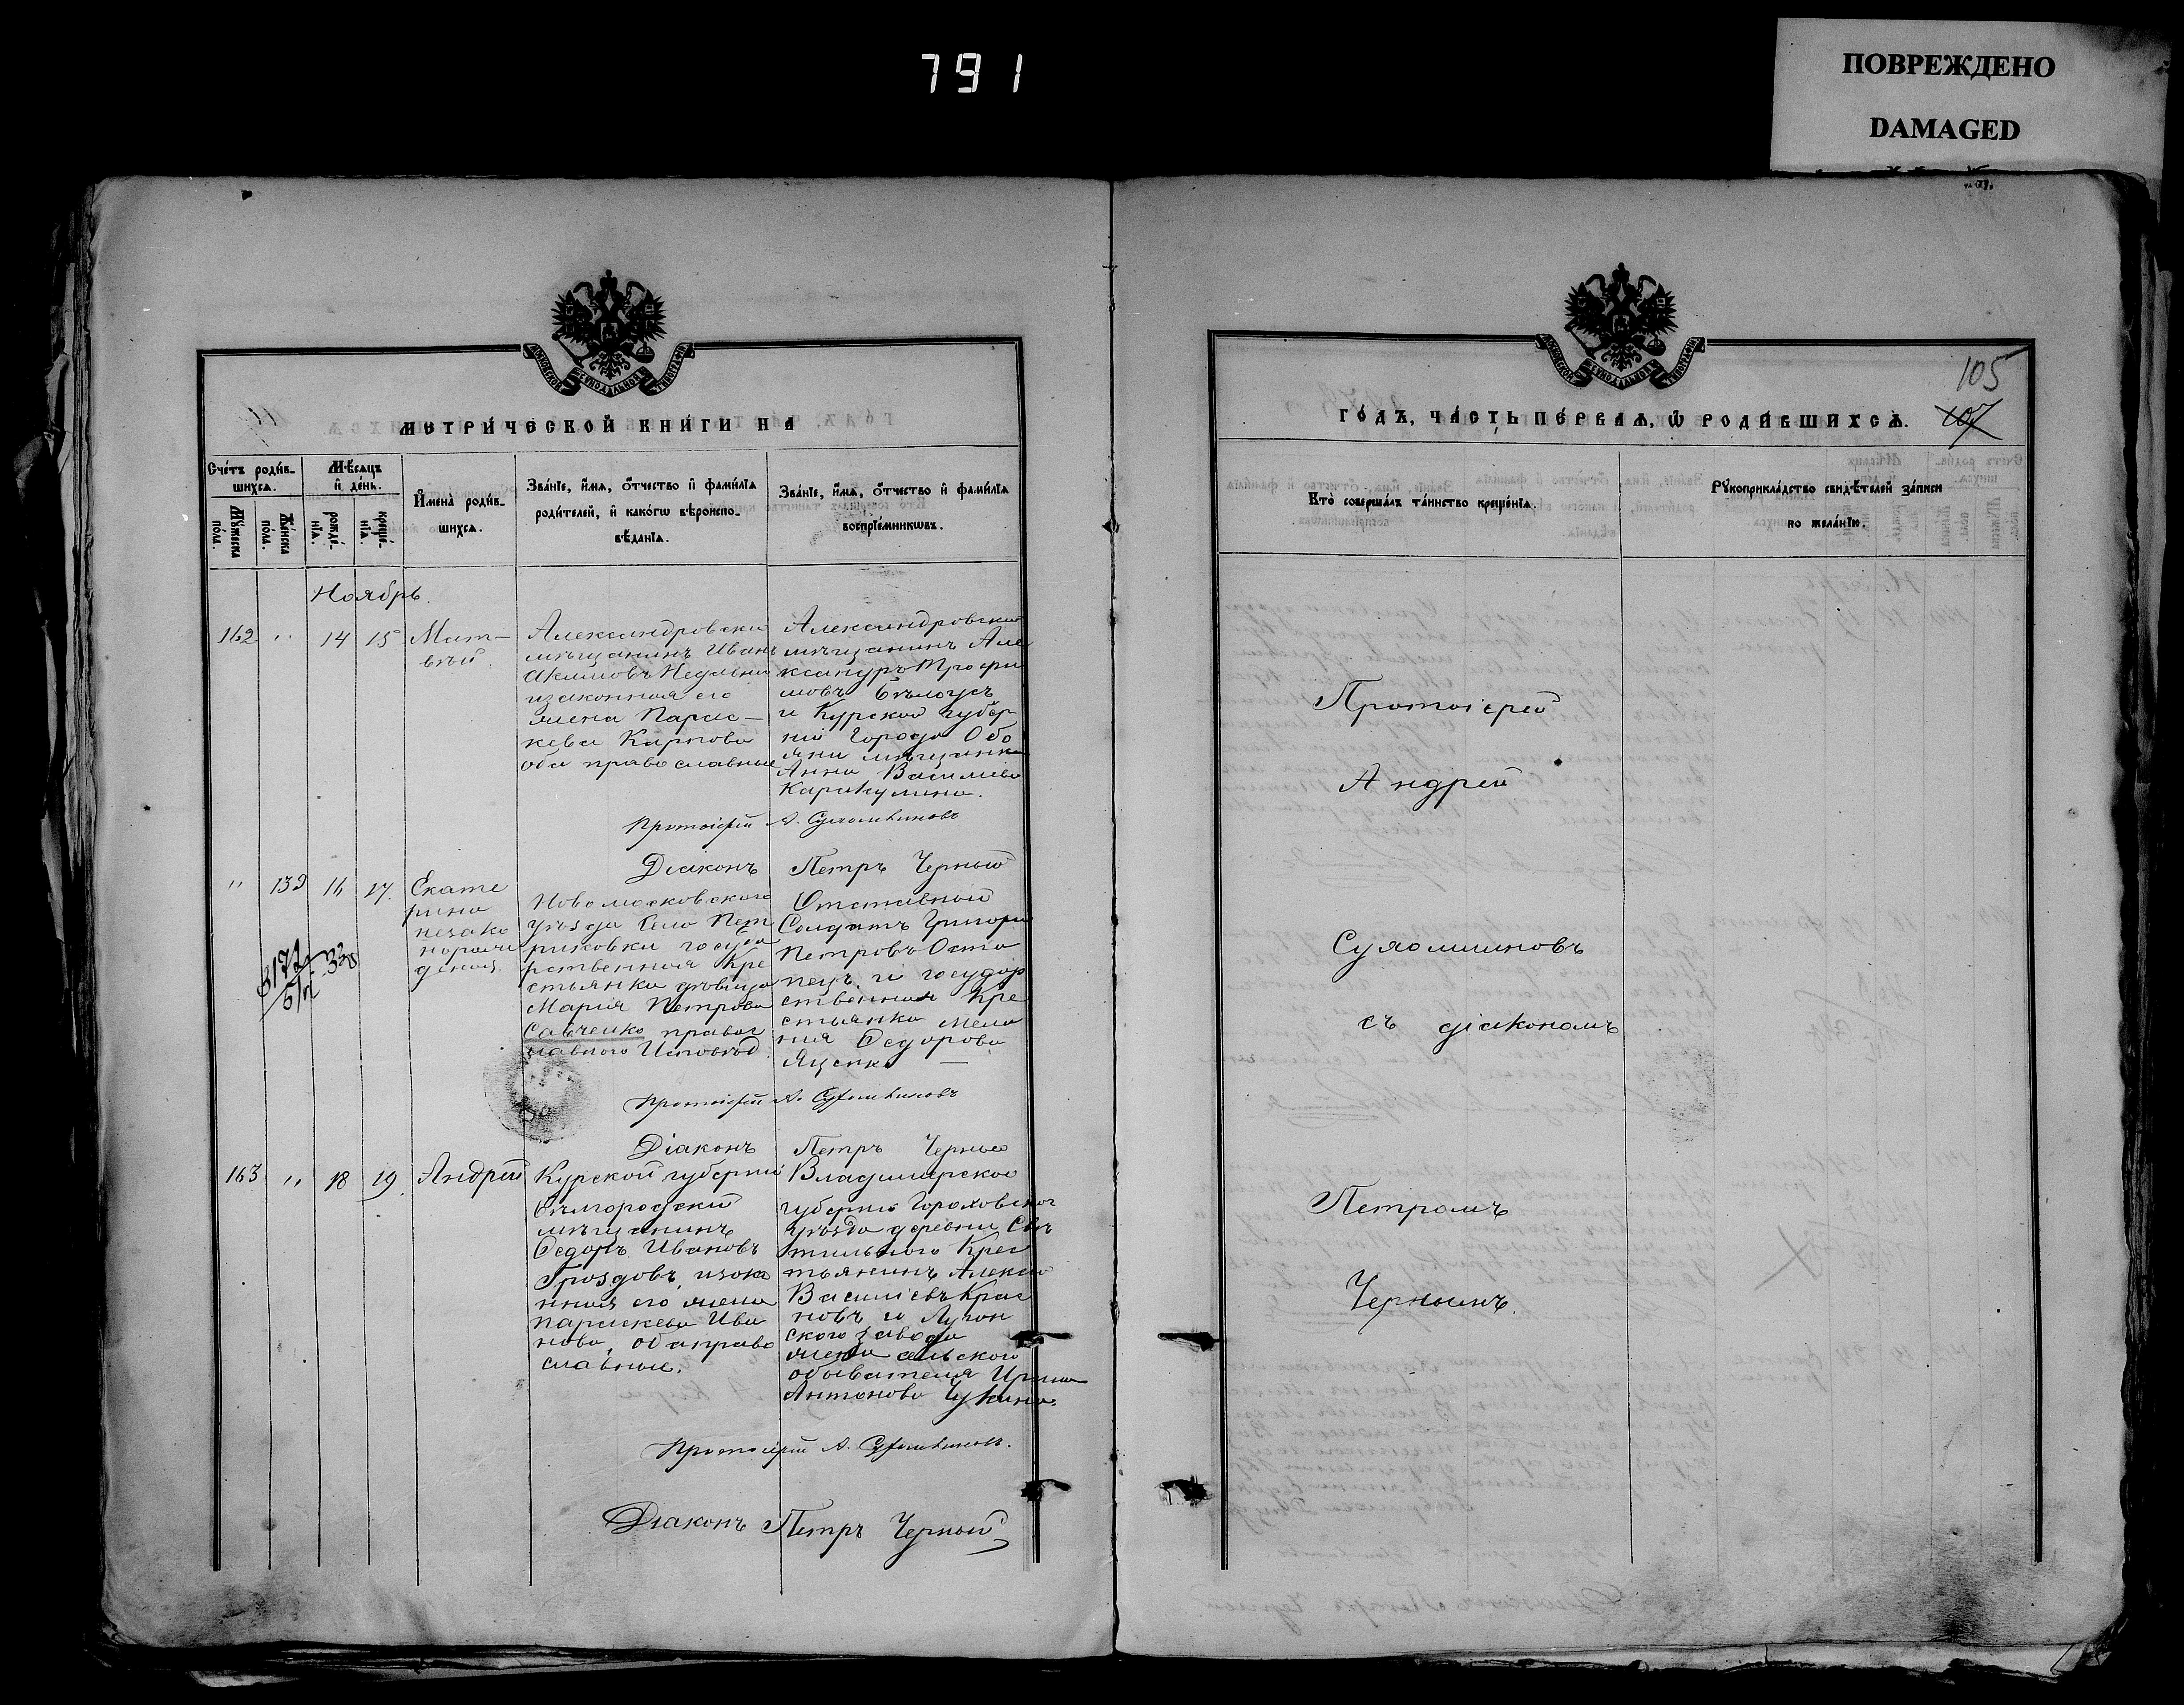 791
ПОВРЕЖДЕНО
DAMAGED
МОСКОВСКОЙ СѴНОДАЛЬНОЙ ТИПОГРАФІИ
МЕТРИ́ЧЕСКОЙ КНИ́ГИ НА
Сче́тъ роди́в-
шихсѧ.
Мꙋ́жеска по́ла.
Же́нска по́ла.
Мѣ́сѧцъ и҆ де́нь.
рожде́-нїѧ.
креще́-нїѧ.
И҆мена̀ роди́в-
шихсѧ.
Зва́нїе, и҆́мѧ, ѻ҆́тчество и҆ фами́лїѧ
роди́телей, и҆ како́гѡ вѣроиспо-
вѣ́данїѧ.
Зва́нїе, и҆́мѧ, ѻ҆́тчество и҆ фами́лїѧ
воспрїе́мникѡвъ.
Ноябрь.
162 " 14 15 Мат-
вѣй.
Александровски
мѣщанинъ Иванъ
Акимовъ
изаконная его
жена Парас-
кева Карпова
оба православные
Александровскій
мѣщанинъ Але
ксандръ Трофи
мовъ Бѣлоусъ
и Курской губер
ніи Города Обо
яни мѣщанка
Анна Василіева
Каракулина.
Протоіерей А. Сухомлиновъ
Діаконъ Петръ Черный
" 139 16 17. Екате
рина
незако
норожде
деная.
3172
Новомосковского
уѣзда Село Пет
риковки госуда
рственная Кре
стьянка дѣвица
Марія Петрова
Савченко правос
лавного Исповѣд.
Отставной
Солдатъ Григори
Петровъ Оста
пецъ и государ
ственная Кре
стьянка Мела
нія Федорова
Яценко —
Протоіерей А. Сухомлиновъ
Діаконъ Петръ Черный
163 " 18 19. Андрей
Курской губерніи
Бѣлгородскій
мѣщанинъ
Федоръ Ивановъ
Гроздовъ, изако
нная его жена
Параскева Ива
нова, оба право
славные.
Владимирской
губерніи Гороховског
уѣзда деревни Свѣ
тильного Крес
тьянинъ Алексѣй
Василіевъ Крас
новъ и Луган
ского завода
жена сельского
обывателя Ирина
Антонова Чукина.
Протоіерей А. Сухомлиновъ.
Діаконъ Петръ Черный
МОСКОВСКОЙ СѴНОДАЛЬНОЙ ТИПОГРАФІИ
105
ГО́ДЪ, ЧА́СТЬ ПЕ́РВАѦ, Ѡ҆ РОДИ́ВШИХСѦ. 107
Кто̀ соверша́лъ та́инство креще́нїѧ.
Рꙋкоприкла́дство свидѣ́телей за́писи
по жела́нїю.
Протоіерей
Андрей
Сухомлиновъ
съ діакономъ
Петромъ
Чернымъ.